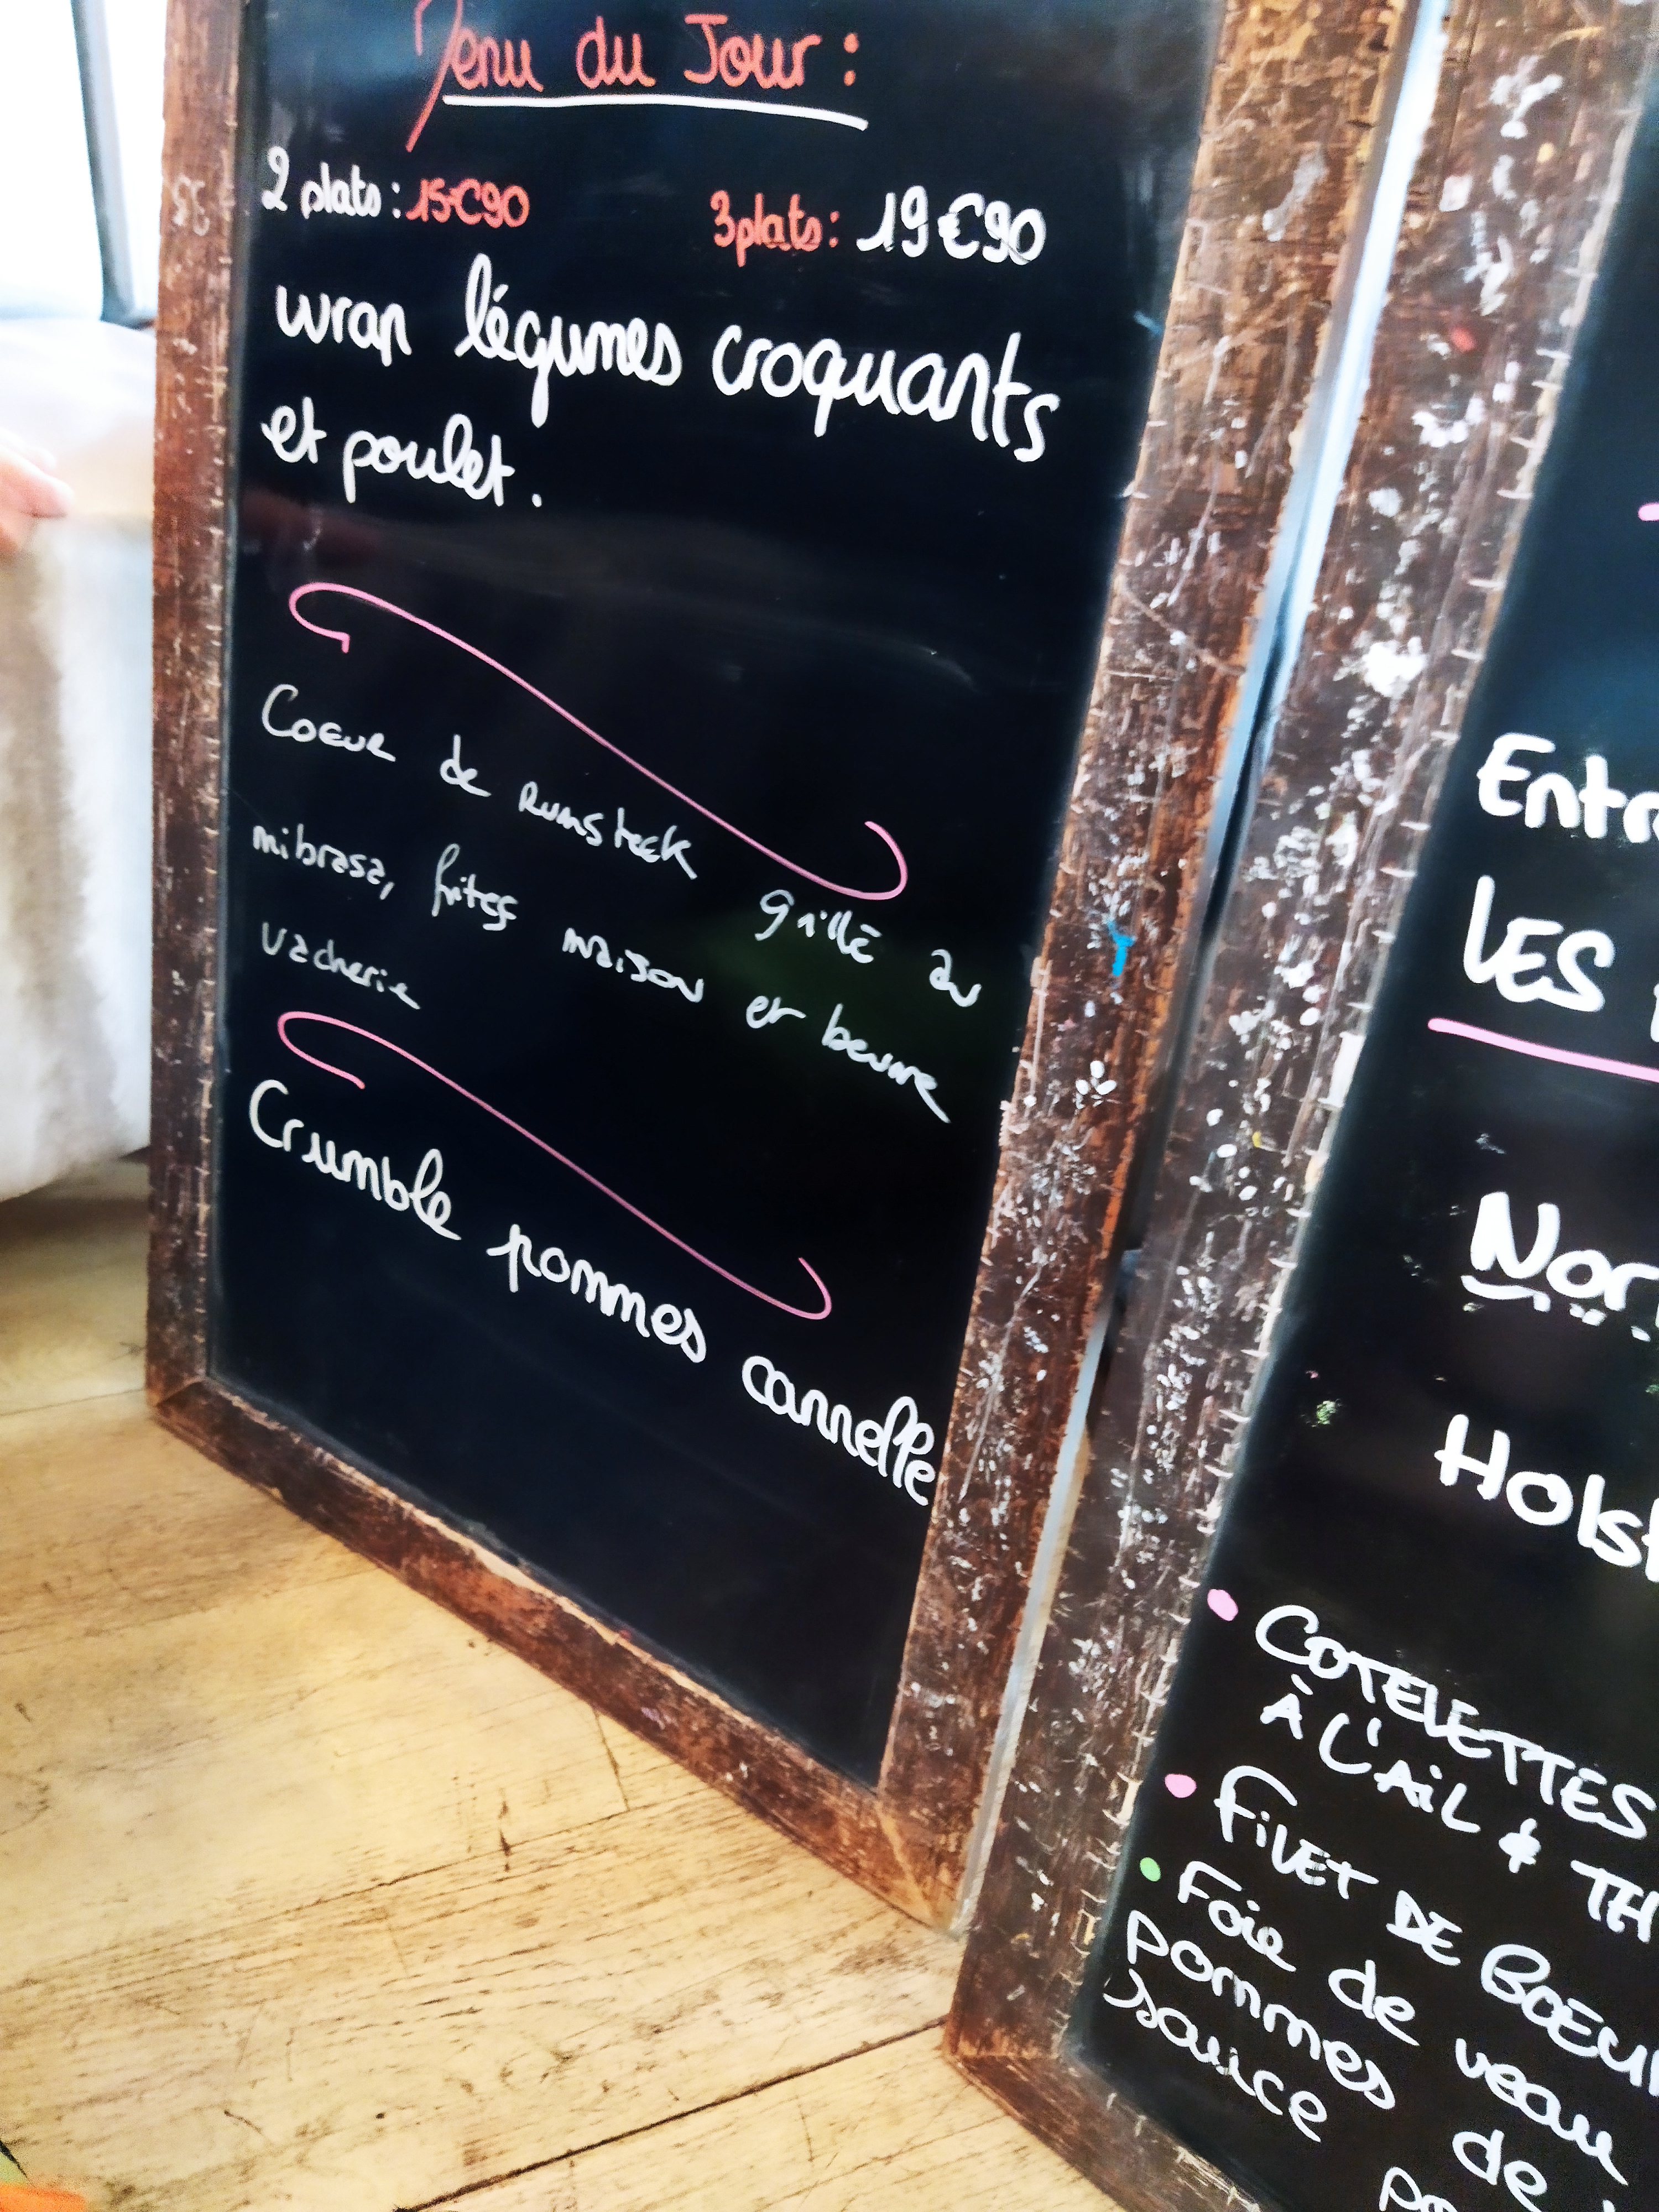 Menu du Jour :
2 plats : 15€90
3 plats : 19€90
wrap légumes croquants
et poulet.
Coeur de rumsteck grillé au
mibrasa, frites maison et beurre
vacherie
Crumble pommes cannelle
Entr
LES
Nor
Hols
• COTELETTES
À L'AIL & TH
• FILET DE BOEU
• Foie de veau
pommes de
sauce